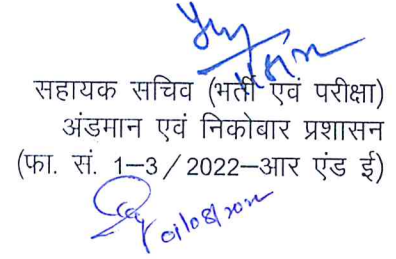 सहायक सचिव (भर्ती एवं परीक्षा)
अंडमान एवं निकोबार प्रशासन
(फा. सं. 1–3/2022–आर एंड ई)
01/08/2022